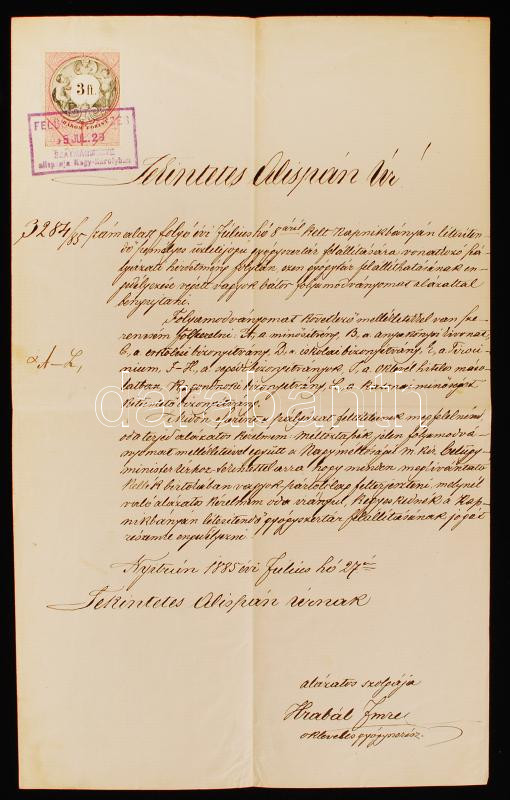 3 ft.
HÁROM FORINT
85 JUL. 29
SZATHMÁRMEGYE
alispánja Nagy-Károlyban
Tekintetes Alispán Úr!
3284/85 szám alatt folyó évi Július hó 8áról kelt Kapnikbányán létesiten-
dő személyes üzleti jogú gyógyszertár felállitására vonatkozó pá-
lyázati hirdetmény folytán, ezen gyógytár felállithatásának en-
gedélyezése végett vagyok bátor folyamodványomat alázattal
benyujtani.
Folyamodványomat következő mellékletekkel van sze-
rencsém fölszerelni: A, a minősitvény, B, a anyakönyvi kivonat,
α A–L,
C, a erkölcsi bizonyitvány, D, a iskolai bizonyitvány, E, a Tirocí-
nium, F-H, a segédi bizonyitványok, J, a oklevél hiteles máso-
latban, K, a
bizonyitvány.
Midőn a pályázat feltételeinek megfelelném,
oda terjed alázatos kérelmem: Méltóztassék jelen folyamodvá-
nyomat mellékleteivel együtt a Nagyméltóságú M. kir. belügy-
arra hogy minden megkivántató
kellék birtokában vagyok pártolólag felterjeszteni, melynél
való alázatos kérelmem oda irányul, kegyeskednék a Kap-
nikbányán létesitendő gyógyszertár felállitásának jogát
részemre engedélyezni.
1885 évi Július hó 27én
Tekintetes Alispán Úrnak
alázatos szolgája
Hrabál Imre
okleveles gyógyszerész.
darabanth